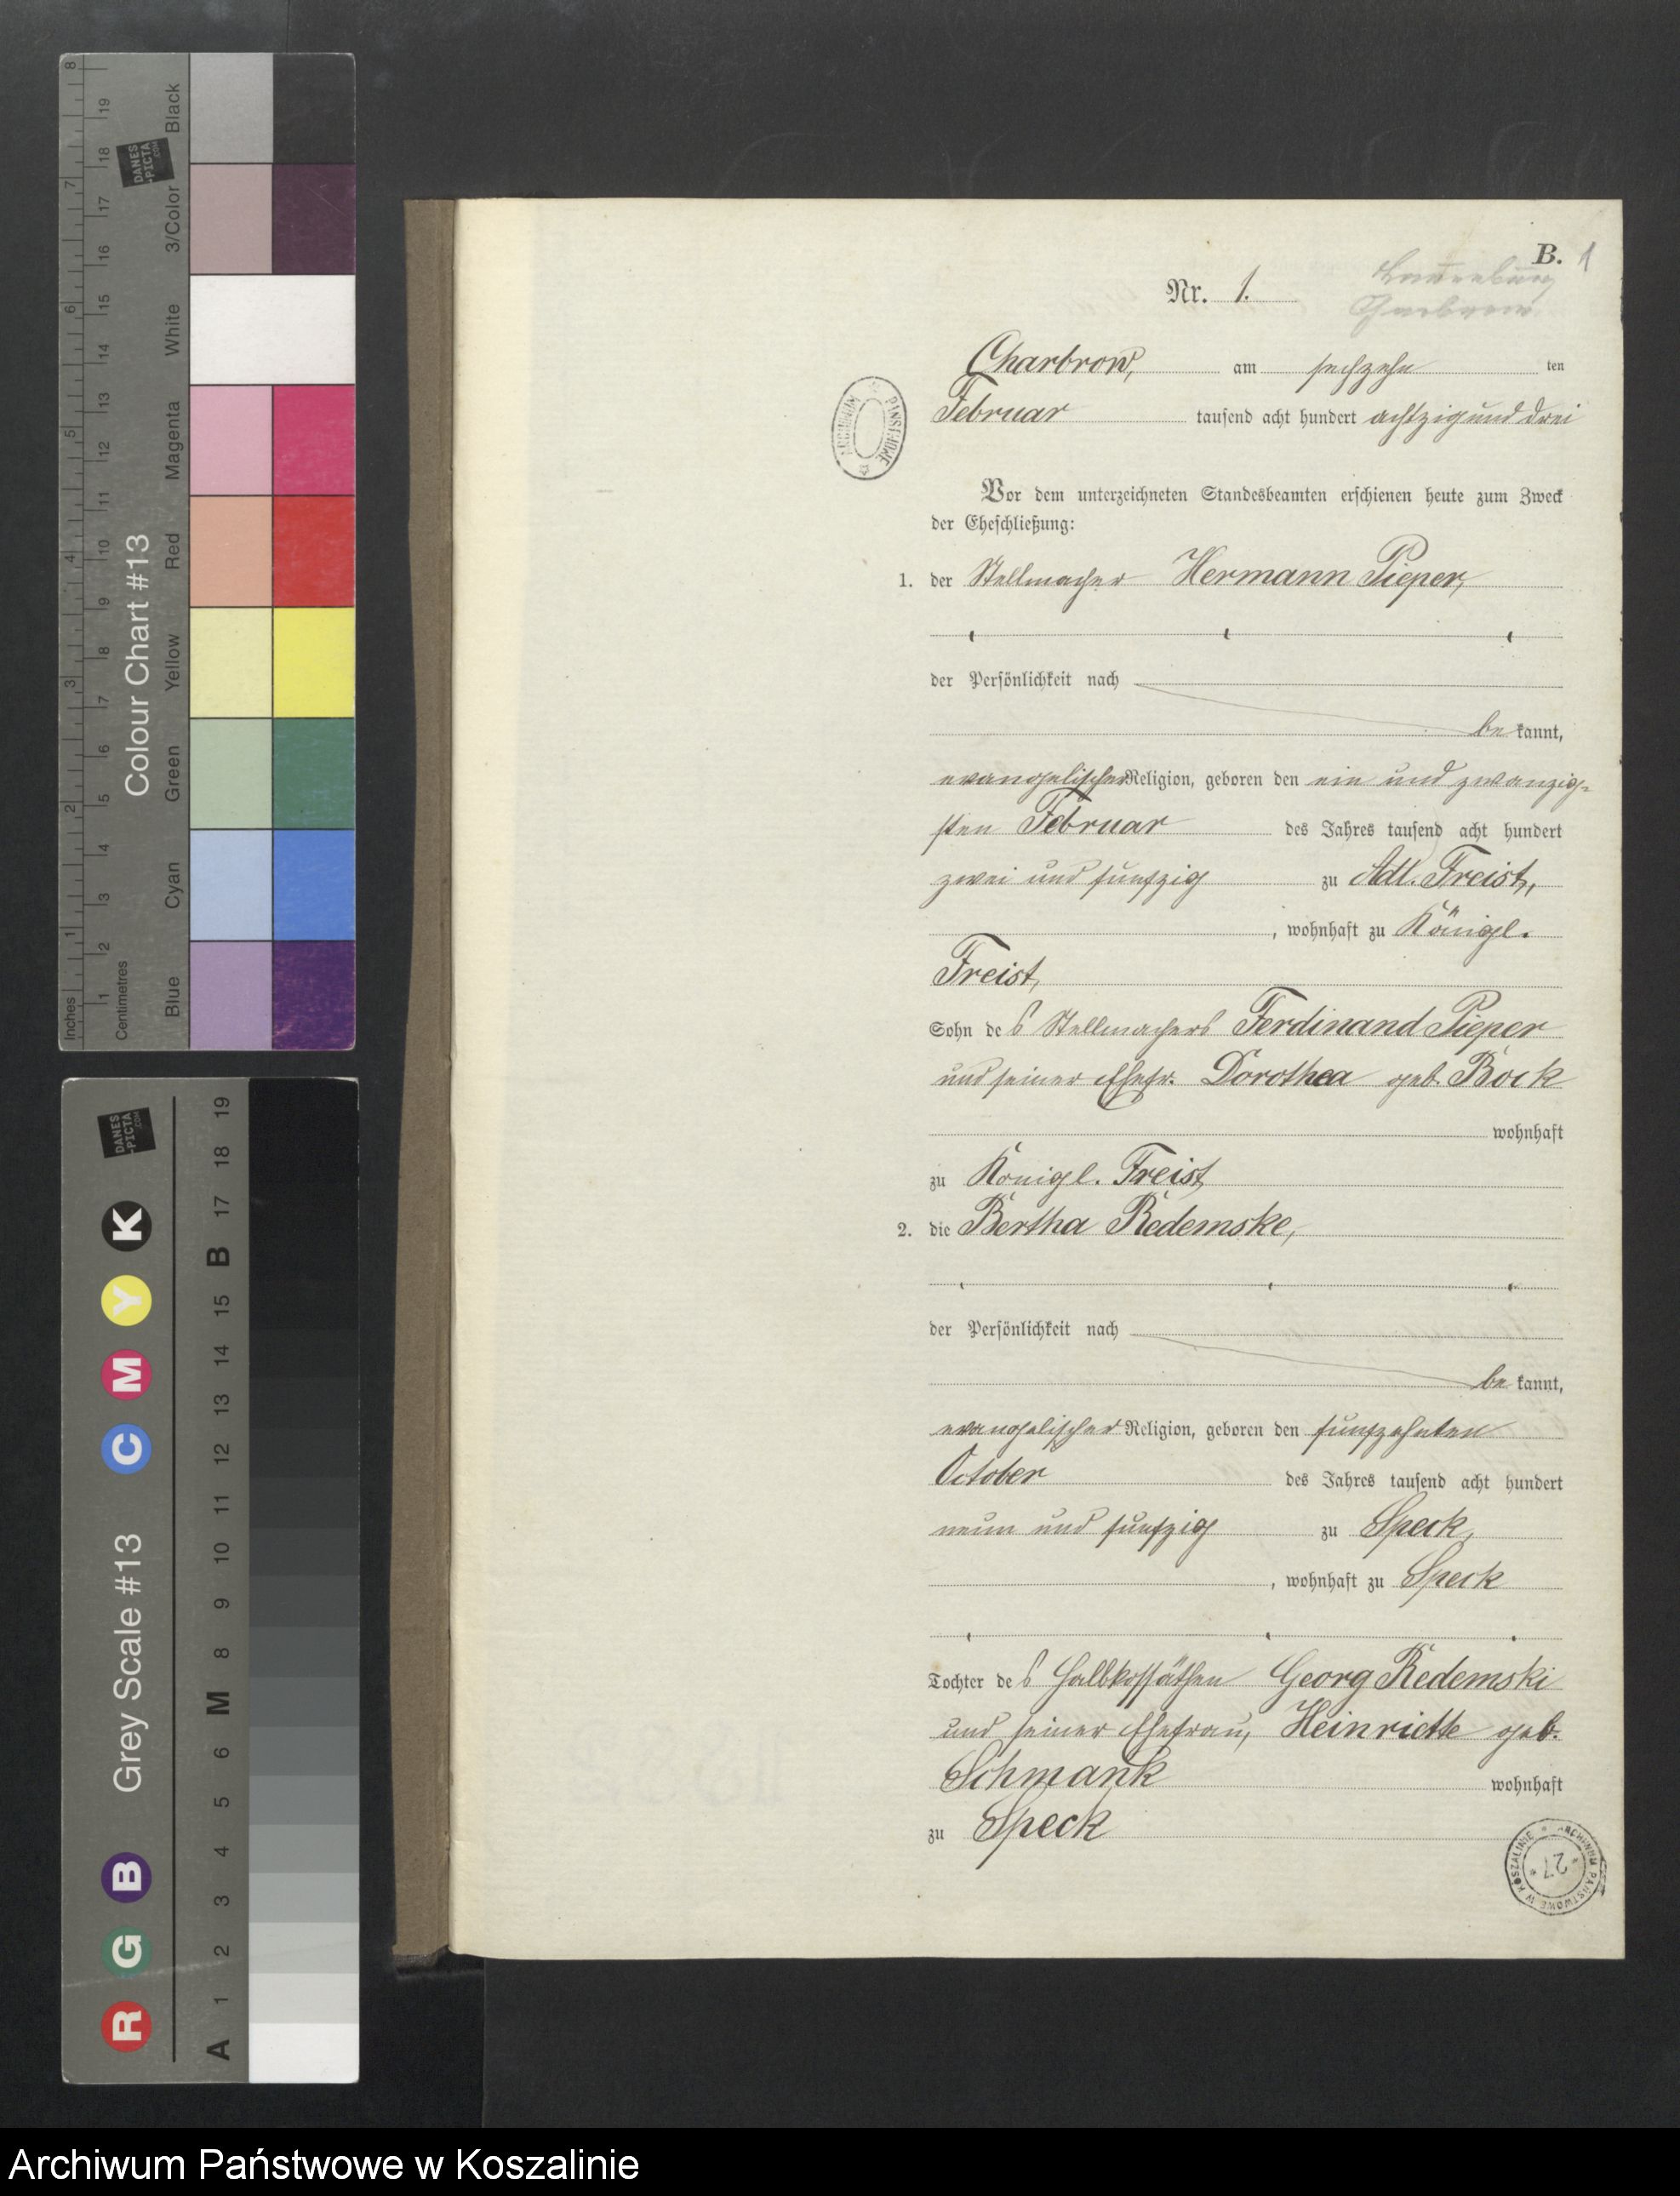 B. 1
Lauenburg
Charbrow
Nr. 1.
Charbrow, am sechzehn ten
Februar tausend acht hundert achtzig und drei
Vor dem unterzeichneten Standesbeamten erschienen heute zum Zweck
der Eheschließung:
1. der Stellmacher Hermann Pieper,
der Persönlichkeit nach
be kannt,
evangelischer Religion, geboren den ein und zwanzig-
sten Februar des Jahres tausend acht hundert
zwei und funfzig zu Adl. Freist,
, wohnhaft zu Königl.
Freist,
Sohn des Stellmachers Ferdinand Pieper
und seiner Ehefr. Dorothea geb. Bock
wohnhaft
zu Königl. Freist
2. die Bertha Redemske,
der Persönlichkeit nach
be kannt,
evangelischer Religion, geboren den funfzehnten
October des Jahres tausend acht hundert
neun und funfzig zu Speck,
, wohnhaft zu Speck
Tochter des Halbkossäthen Georg Redemski
und seiner Ehefrau, Heinriette geb.
Schmank wohnhaft
zu Speck
ARCHIWUM PAŃSTWOWE
ARCHIWUM PAŃSTWOWE W KOSZALINIE
27
Colour Chart #13
Blue Cyan Green Yellow Red Magenta White 3/Color Black
Inches 1 2 3 4 5 6 7 8
Centimetres 1 2 3 4 5 6 7 8 9 10 11 12 13 14 15 16 17 18 19
DANES
-PICTA
.COM
Grey Scale #13
R G B C M Y K
A 1 2 3 4 5 6 M 8 9 10 11 12 13 14 15 B 17 18 19
DANES
-PICTA
.COM
Archiwum Państwowe w Koszalinie